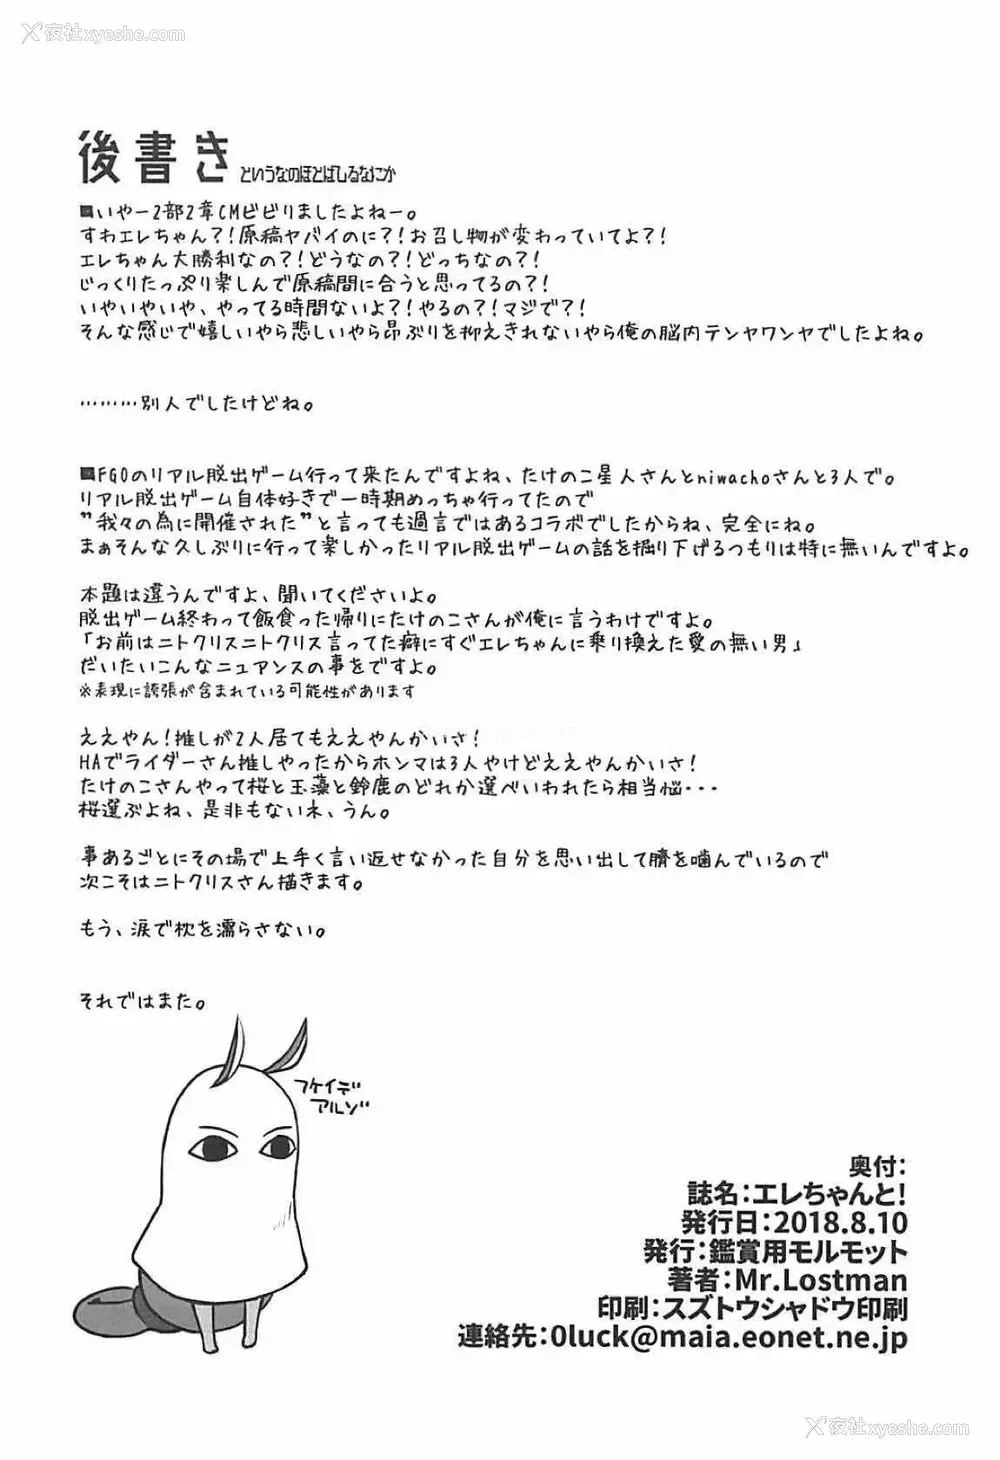 夜社xyeshe.com
夜社xyeshe.com
後書き
というなのほとばしるなにか
■いやー2部2章CMビビりましたよねー。
すわエレちゃん?!原稿ヤバイのに?!お召し物が変わっていてよ?!
エレちゃん大勝利なの?!どうなの?!どっちなの?!
じっくりたっぷり楽しんで原稿間に合うと思ってるの?!
いやいやいや、やってる時間ないよ?!やるの?!マジで?!
そんな感じで嬉しいやら悲しいやら昂ぶりを抑えきれないやら俺の脳内テンヤワンヤでしたよね。
………別人でしたけどね。
■FGOのリアル脱出ゲーム行って来たんですよね、たけのこ星人さんとniwachoさんと3人で。
リアル脱出ゲーム自体好きで一時期めっちゃ行ってたので
”我々の為に開催された”と言っても過言ではあるコラボでしたからね、完全にね。
まぁそんな久しぶりに行って楽しかったリアル脱出ゲームの話を掘り下げるつもりは特に無いんですよ。
本題は違うんですよ、聞いてくださいよ。
脱出ゲーム終わって飯食った帰りにたけのこさんが俺に言うわけですよ。
「お前はニトクリスニトクリス言ってた癖にすぐエレちゃんに乗り換えた愛の無い男」
だいたいこんなニュアンスの事をですよ。
※表現に誇張が含まれている可能性があります
ええやん!推しが2人居てもええやんかいさ!
HAでライダーさん推しやったからホンマは3人やけどええやんかいさ!
たけのこさんやって桜と玉藻と鈴鹿のどれか選べいわれたら相当悩・・・
桜選ぶよね、是非もないネ、うん。
事あるごとにその場で上手く言い返せなかった自分を思い出して臍を噛んでいるので
次こそはニトクリスさん描きます。
もう、涙で枕を濡らさない。
それではまた。
フケイデ
アルゾ
奥付:
誌名:エレちゃんと!
発行日:2018.8.10
発行:鑑賞用モルモット
著者:Mr.Lostman
印刷:スズトウシャドウ印刷
連絡先:0luck@maia.eonet.ne.jp
夜社xyeshe.com